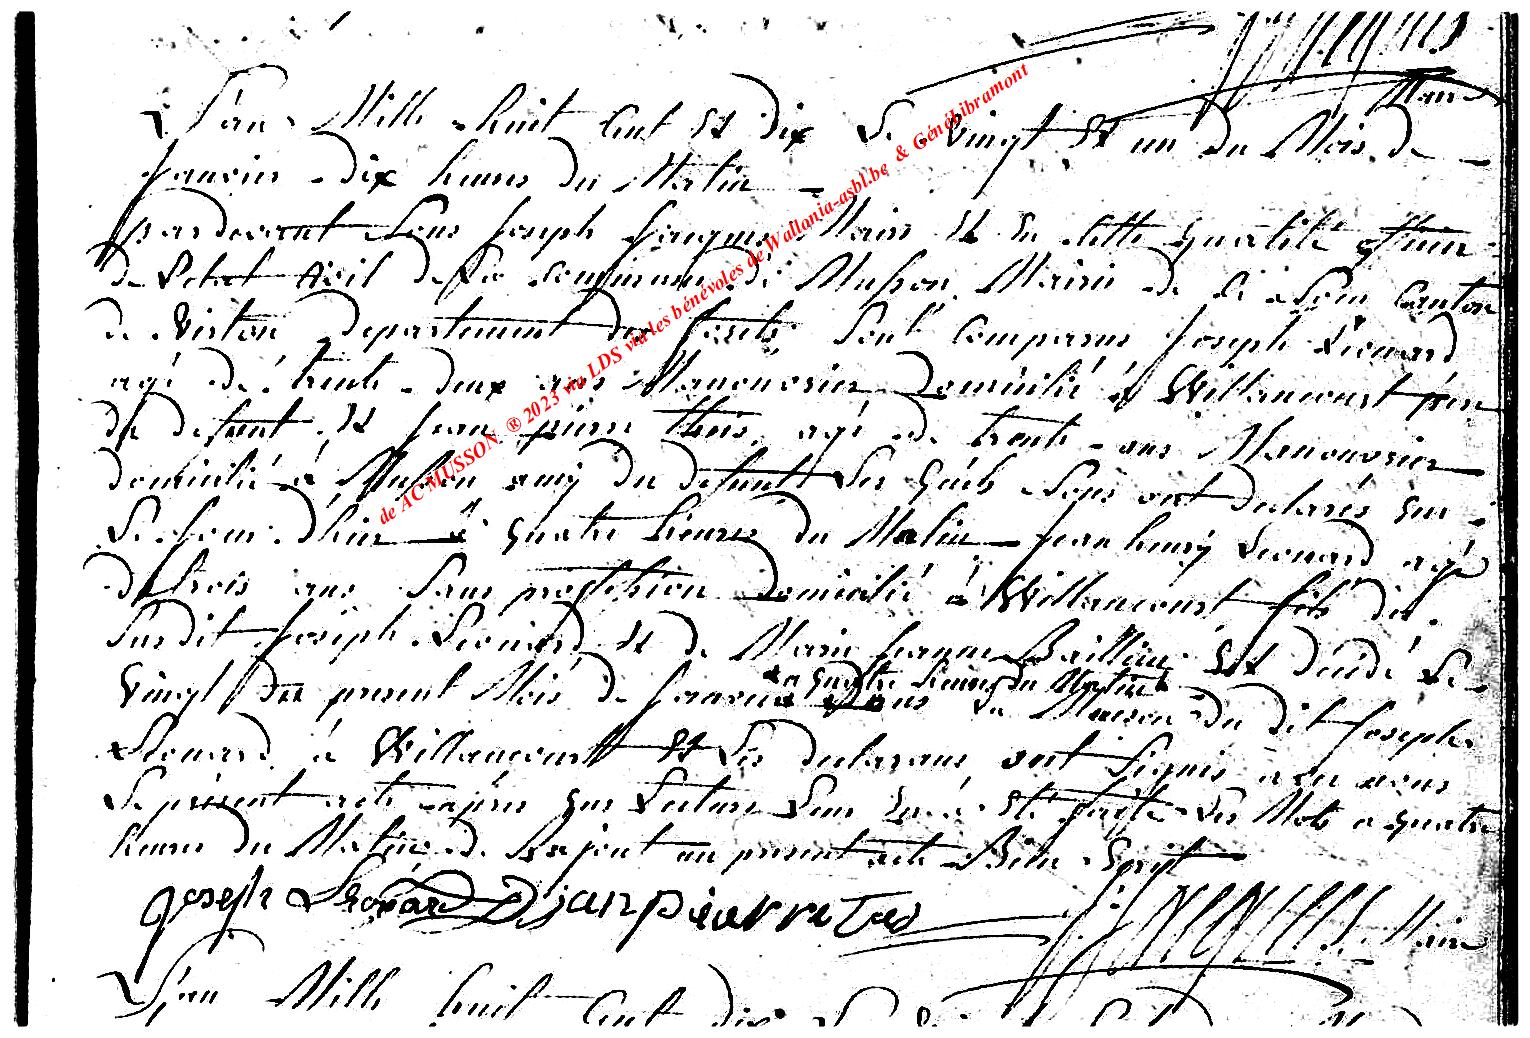 Maire
L'an Mille huit Cent Et dix Le Vingt Et un du Mois de
Janvier dix heures du Matin
pardevant Nous Joseph Jacques Maire Et En Cette qualité officier
de L'etat Civil de La Commune de Musson Mairie de Canton
de Virton departement des forets Sont Comparus Joseph Léonard
agé de trente deux ans Manouvrier domicilié á Willancourt père
du defunt Et Jean pierre this agé de trente ans Manouvrier
domicilié á Musson amÿ du defunt Les quels Nous ont declarés que
Le Jour d'hier á quatre heures du Matin Jean henrÿ Leonard agé
de trois ans Sans profession domicilié á Willancourt fils du
Susdit Joseph Leonard Et de Marie Jeanne Baillieu Est décédé Le
a quatre heures du Matin
Vingt du present Mois de Janvier dans La Maison du dit Joseph
Leonard á Willancourt Et Les declarans ont Signés avec nous
Le présent acte après que Lecture Leur En á Eté faite Les Mots a quatre
heures du Matin de Rajout au present acte Bien Esprit
joseph Leonard janpierre tes
Maire
L'an Mille huit Cent dix Le
de AC MUSSON ® 2023 via LDS via les bénévoles de Wallonia-asbl.be & Génébibramont